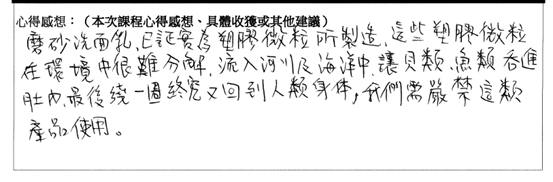 心得感想：（本次課程心得感想、具體收獲或其他建議）
磨砂洗面乳，已証實為塑膠微粒所製造，這些塑膠微粒
在環境中很難分解，流入河川及海洋中，讓貝類、魚類吞進
肚內，最後繞一週終究又回到人類身体，我們需嚴禁這類
產品使用。